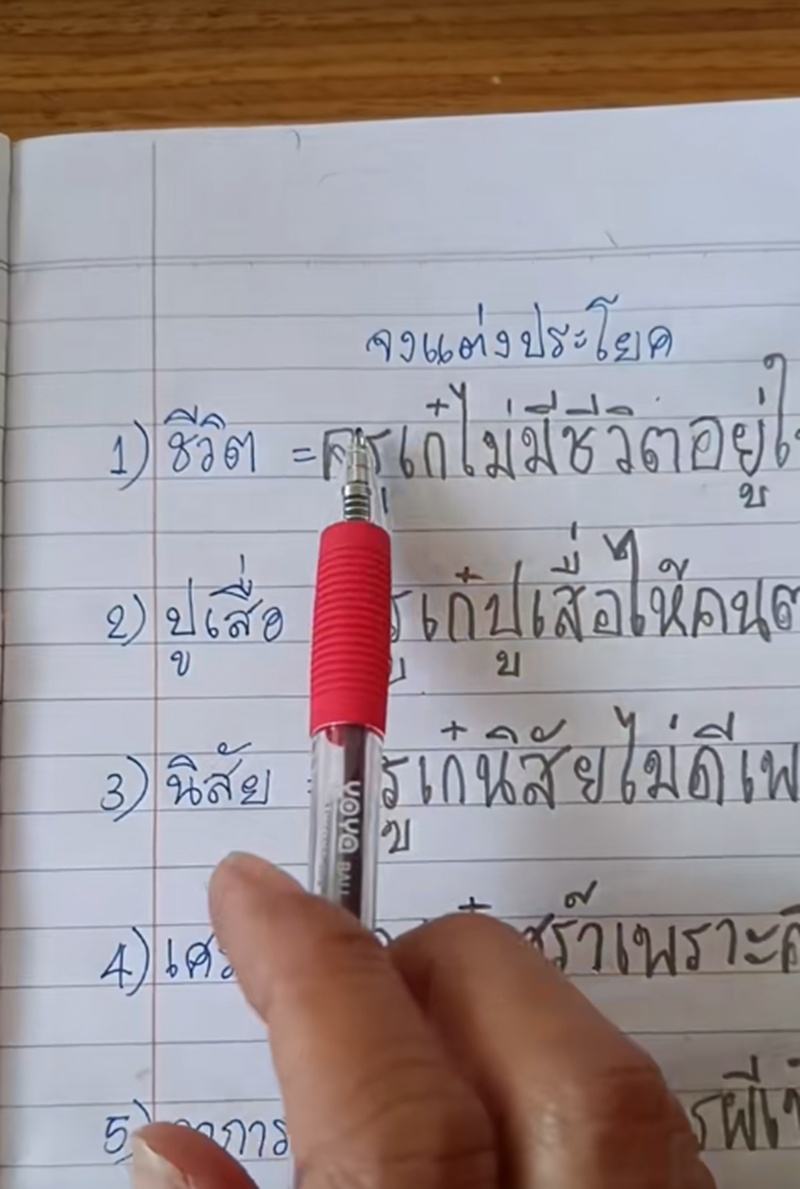 จงแต่งประโยค
1) ชีวิต = ครูเก๋ไม่มีชีวิตอยู่ใ
2) ปูเสื่อ รูเก๋ปูเสื่อให้คนต
3) นิสัย รูเก๋นิสัยไม่ดีเพ
4) เศร ศร้าเพราะ
5) อาการ รผีเข้
yoya BALL